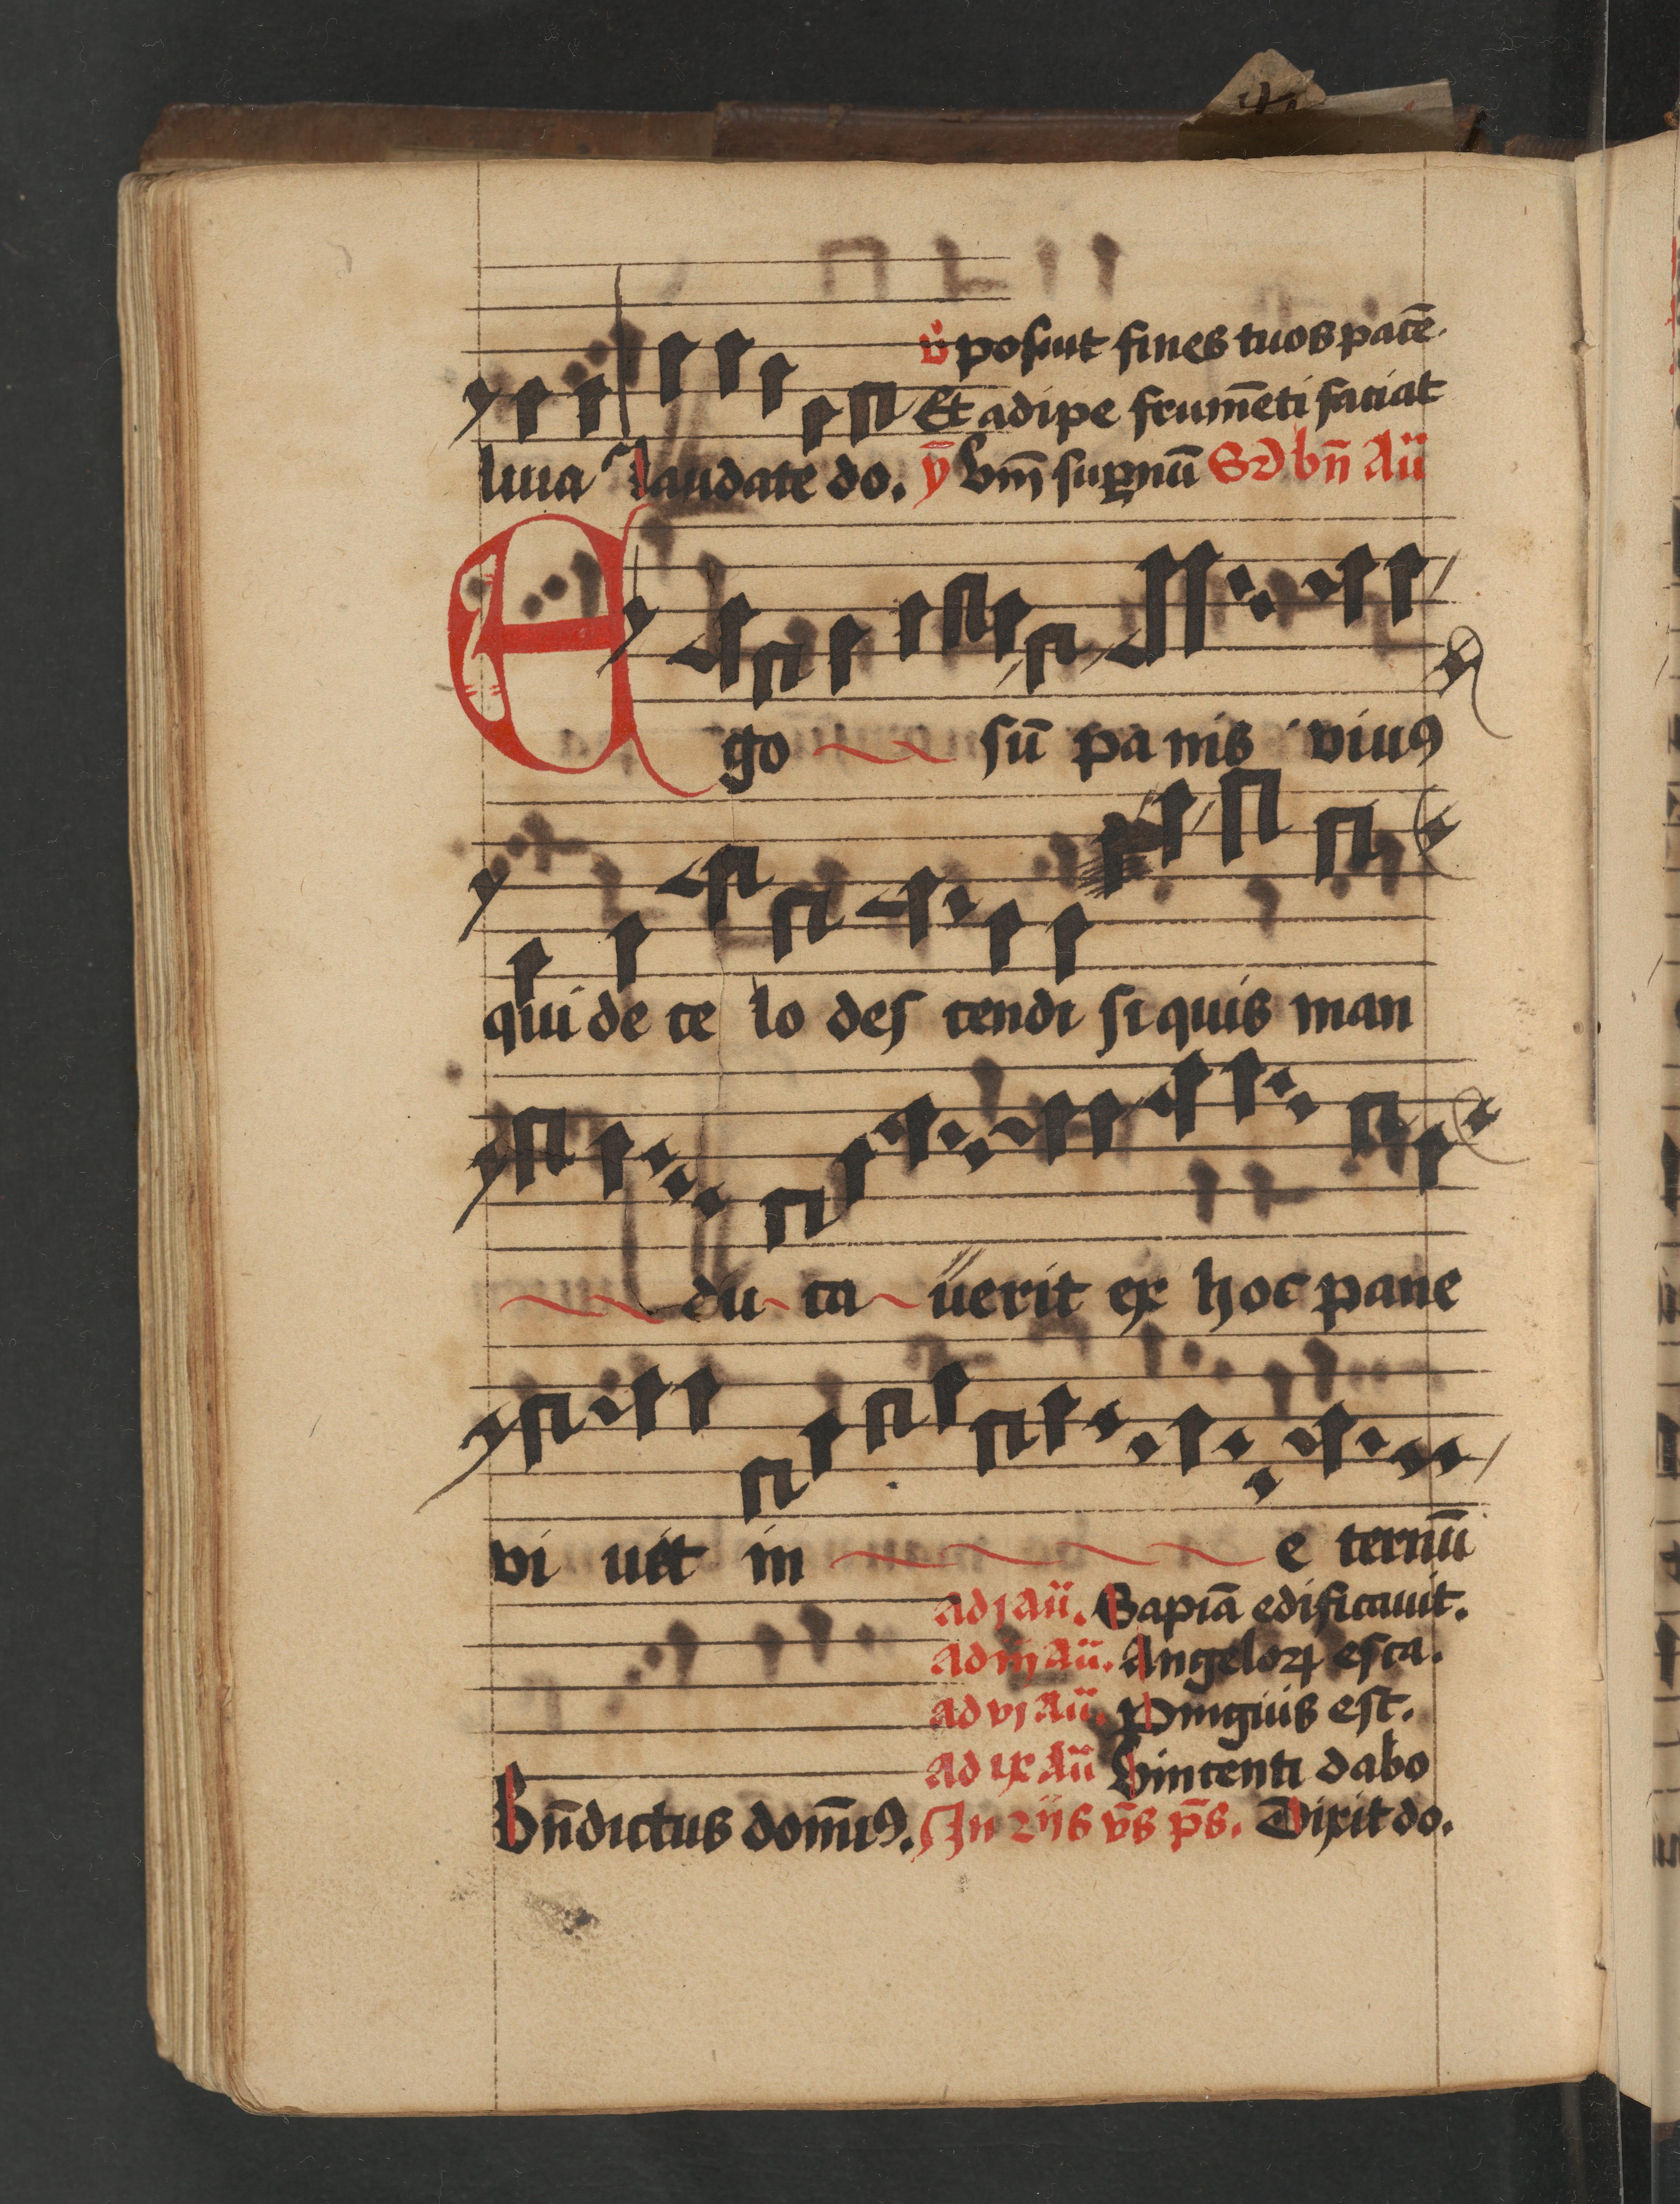 v̊ posuit fines tuos pacē.
Et adipe frumēti saciat
luia Laudate do. ẏ Vm̄ suꝑnū Sd bn̄ Aū
Ego sū pa nis viuꝯ
qui de ce lo des cendi si quis man
du ca uerit ex hoc pane
vi uet in e ternū
ad j aū. Sapiā edificauit.
ad iij aū. Angeloꝝ esca.
ad vj aū. Pinguis est.
ad ix aū Vincenti dabo
Bn̄dictus domīꝯ. In 2ijs v̄s p̄s. Dixit do.